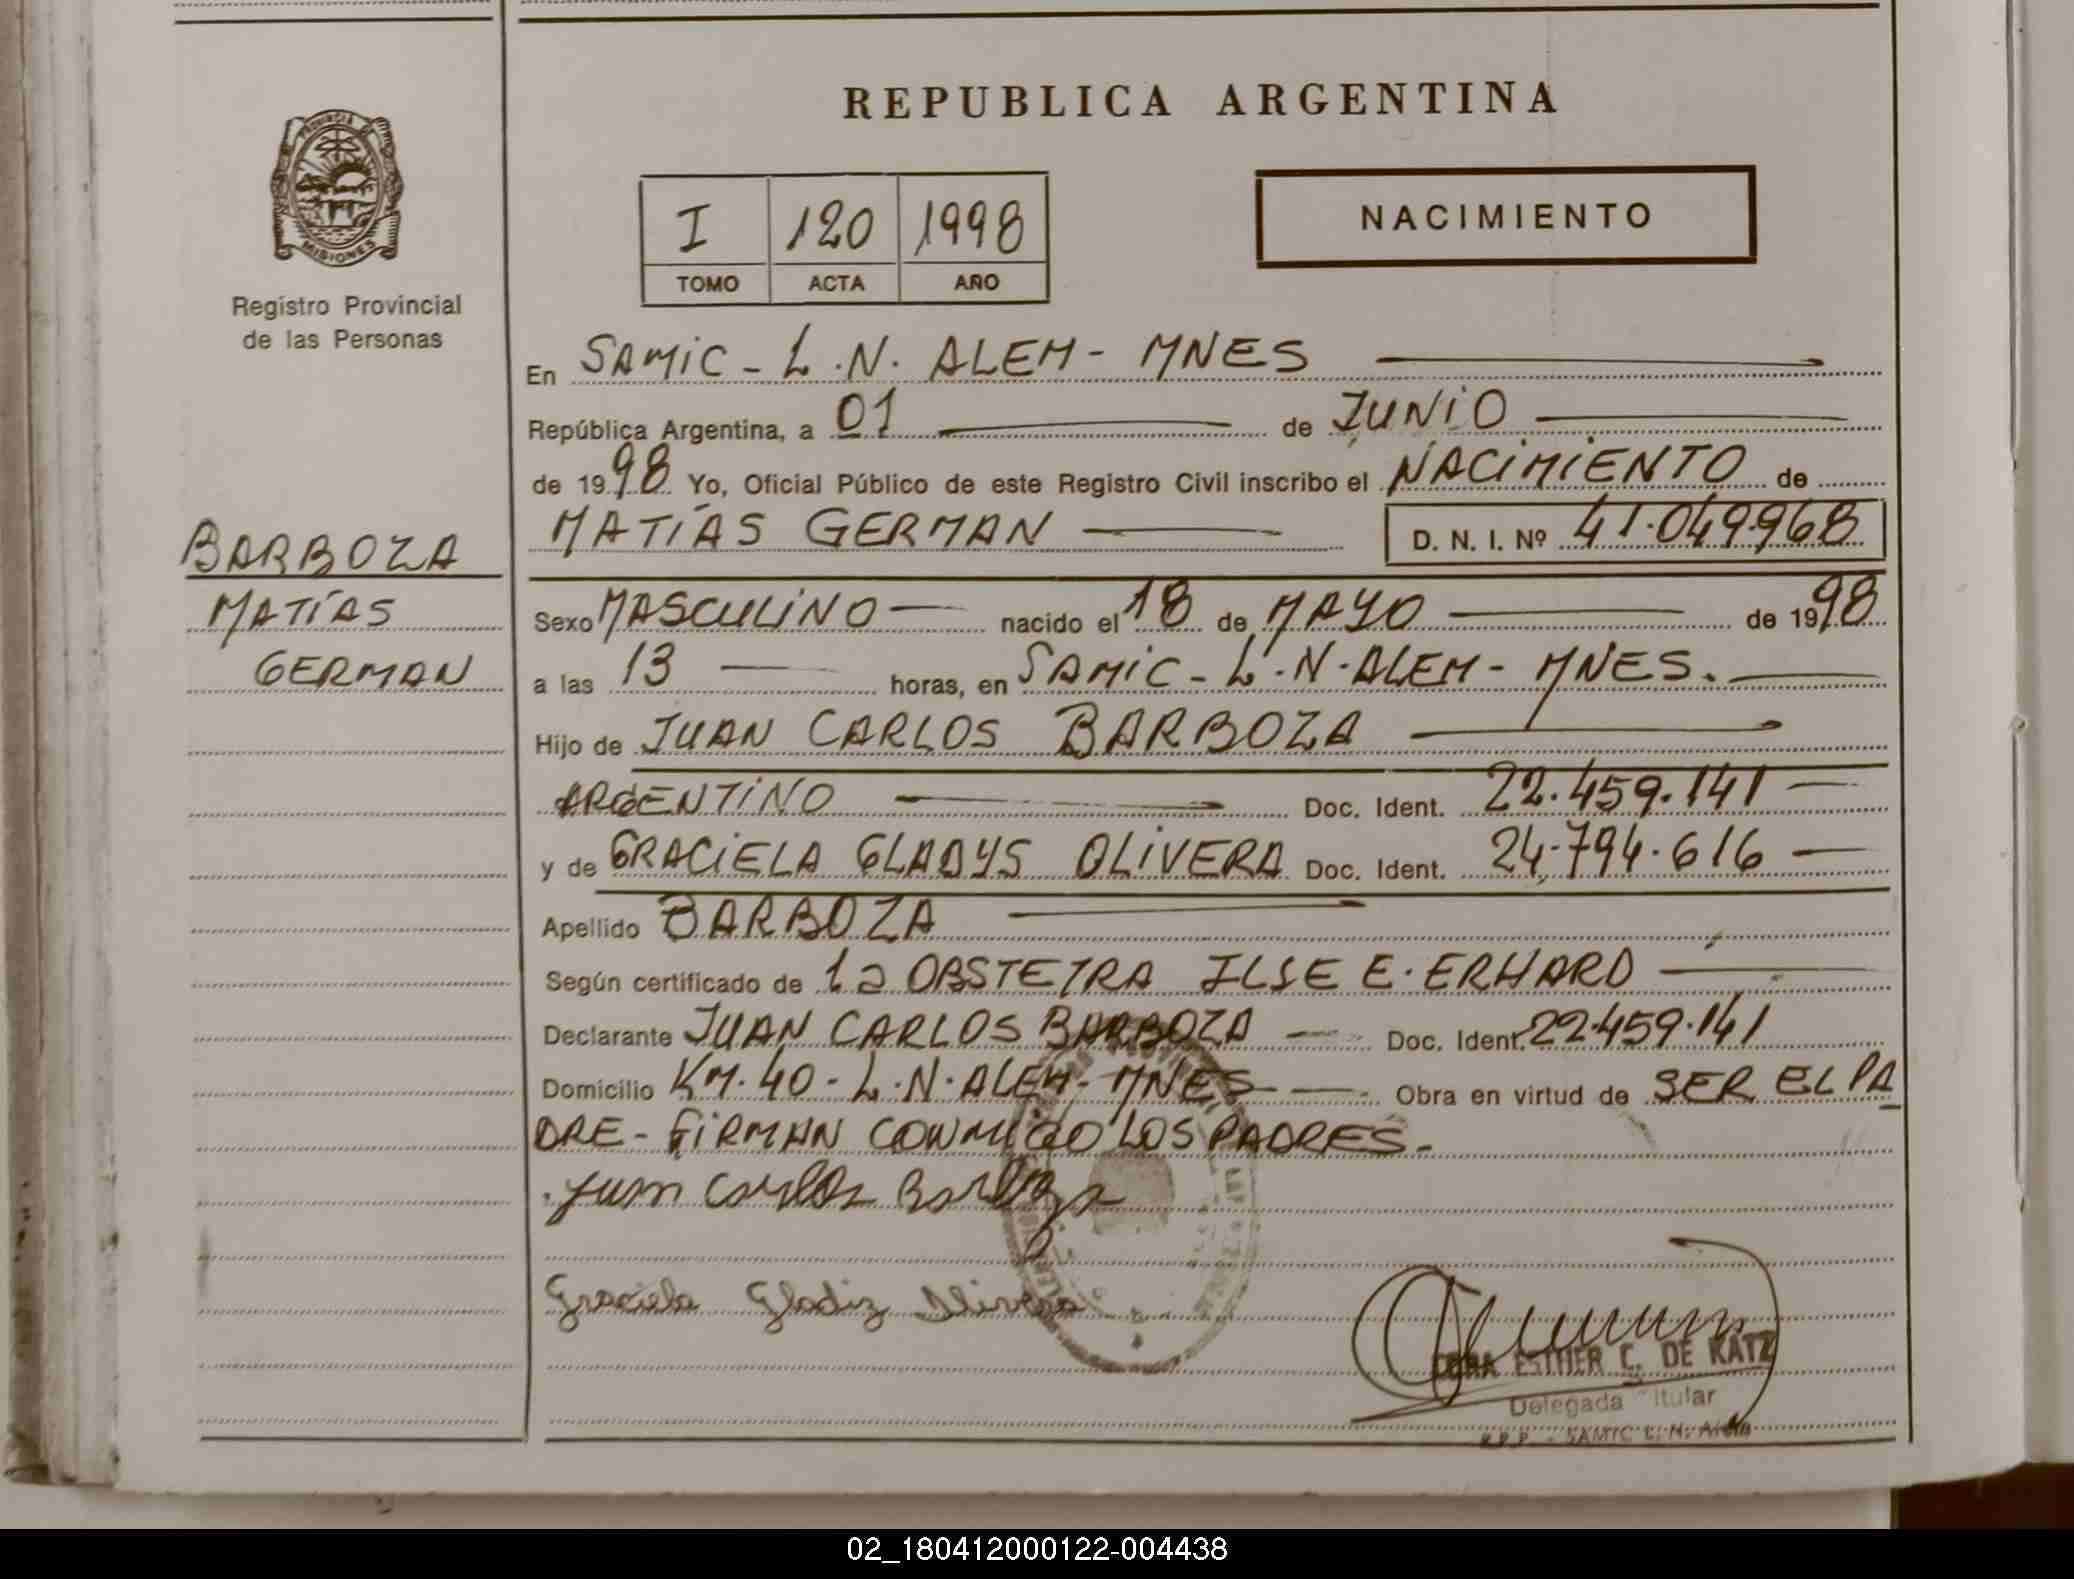 REPUBLICA ARGENTINA
PROVINCIA DE
MISIONES
Registro Provincial
de las Personas
I 120 1998
TOMO ACTA AÑO
NACIMIENTO
En SAMIC - L.N. ALEM - MNES
República Argentina, a 01 de JUNIO
de 1998 Yo, Oficial Público de este Registro Civil inscribo el NACIMIENTO de
MATÍAS GERMAN D. N. I. Nº 41.049.968
BARBOZA
MATÍAS
GERMAN
Sexo MASCULINO nacido el 18 de MAYO de 1998
a las 13 horas, en SAMIC - L.N. ALEM - MNES.
Hijo de JUAN CARLOS BARBOZA
ARGENTINO Doc. Ident. 22.459.141
y de GRACIELA GLADYS OLIVERA Doc. Ident. 24.794.616
Apellido BARBOZA
Según certificado de la OBSTETRA ILSE E. ERHARD
Declarante JUAN CARLOS BARBOZA Doc. Ident. 22.459.141
Domicilio KM. 40 - L.N. ALEM - MNES Obra en virtud de SER EL PA
DRE - FIRMAN CONMIGO LOS PADRES.
Juan Carlos Barboza
Graciela Gladiz Olivera
ESTHER C. DE KATZ
Delegada Titular
R.P.P. - SAMIC L. N. Alem
02_180412000122-004438